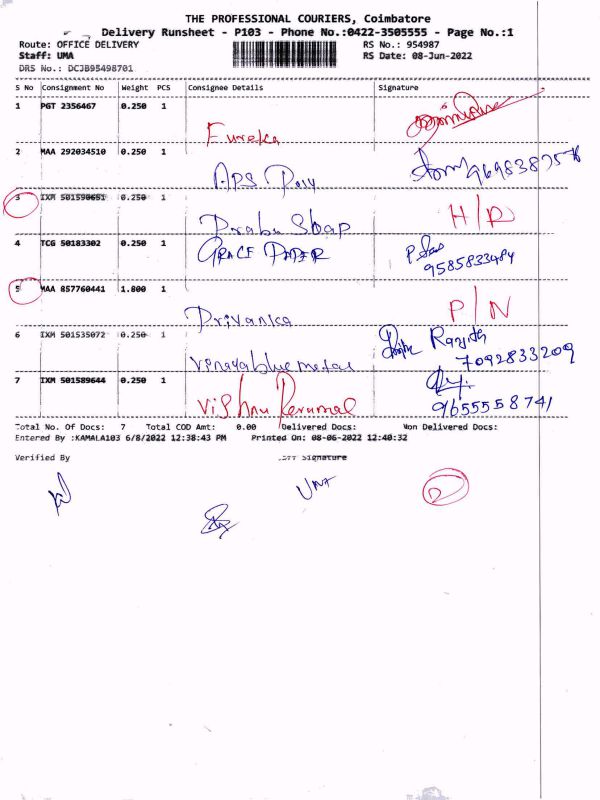 THE PROFESSIONAL COURIERS, Coimbatore
Delivery Runsheet - P103 - Phone No.:0422-3505555 - Page No.:1
Route: OFFICE DELIVERY RS No.: 954987
Staff: UMA RS Date: 08-Jun-2022
DRS No.: DCJB95498701
S No Consignment No Weight PCS Consignee Details Signature
1 PGT 2356467 0.250 1
Eureka
2 MAA 292034510 0.250 1
APS Poly 9698387578
3 IXM 501590651 0.250 1
Prabu Soap H/R
4 TCG 50183302 0.250 1 GRACE PAPER
9585833484
5 MAA 857760441 1.800 1
Priyanka P/N
6 IXM 501535072 0.250 1
Vinayabluemetal 7092833209
7 IXM 501589644 0.250 1
Vishnu Perumal 9655558741
Total No. Of Docs: 7 Total COD Amt: 0.00 Delivered Docs: Non Delivered Docs:
Entered By :KAMALA103 6/8/2022 12:38:43 PM Printed On: 08-06-2022 12:40:32
Verified By Signature
UMA
2